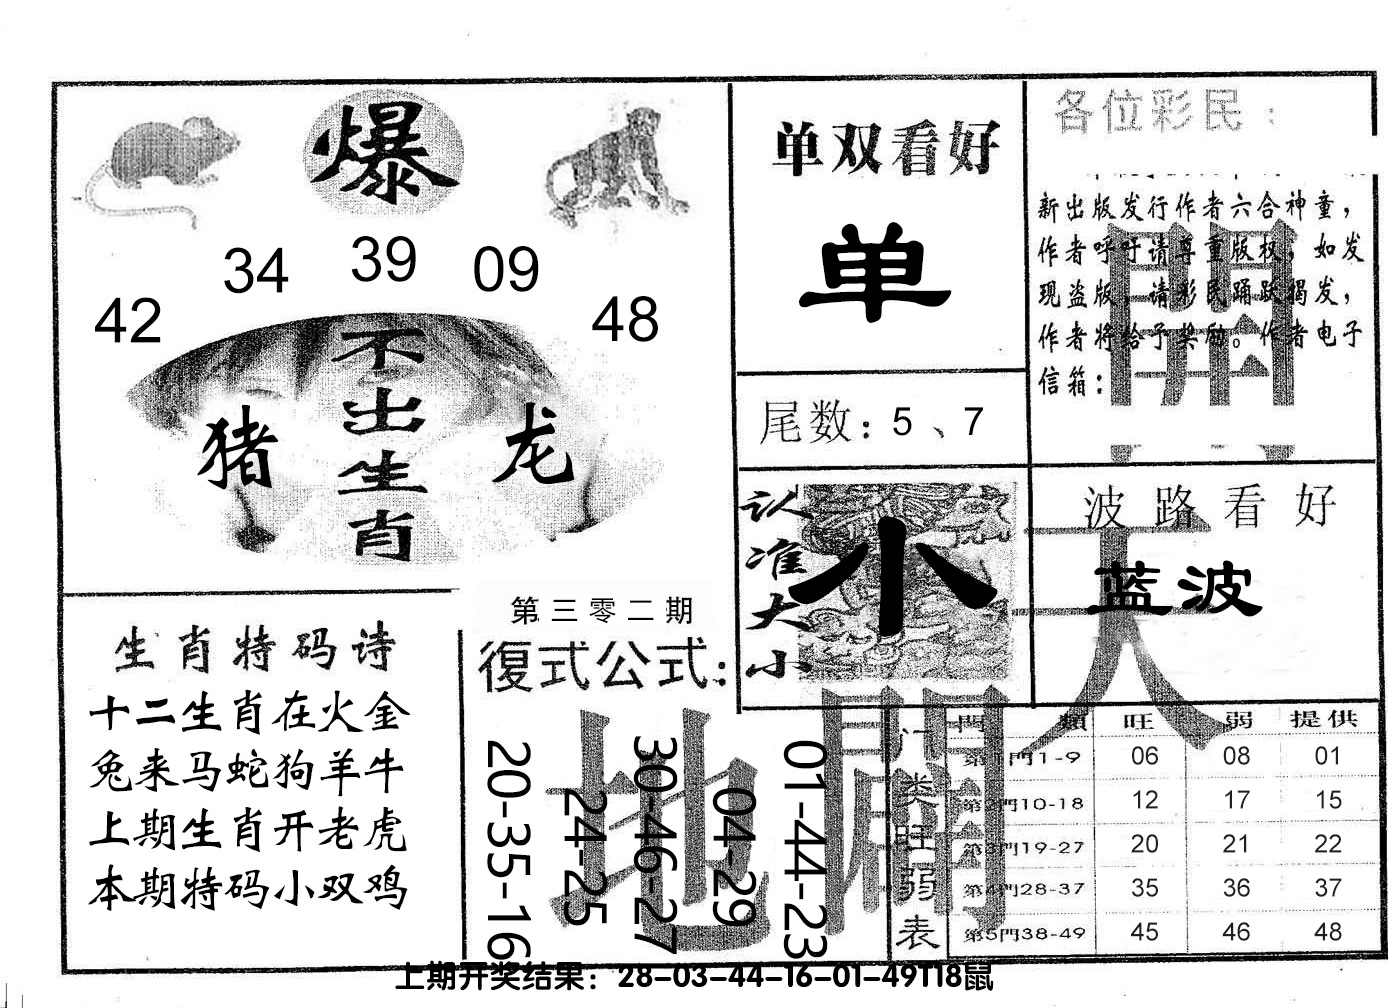 爆
42 34 39 09 48
不出生肖
猪 龙
生肖特码诗
十二生肖在火金
兔来马蛇狗羊牛
上期生肖开老虎
本期特码小双鸡
第三零二期
復式公式:
20-35-16
24-25
30-46-27
04-29
01-44-23
单双看好
单
尾数: 5 、7
认准大小
小
各位彩民:
新出版发行作者六合神童,
作者呼吁请尊重版权, 如发
现盗版, 请彩民踊跃揭发,
作者将给予奖励。作者电子
信箱:
開
天
波路看好
蓝波
地
门类旺弱表
門 類 旺 弱 提供
第1門1-9 06 08 01
第2門10-18 12 17 15
第3門19-27 20 21 22
第4門28-37 35 36 37
第5門38-49 45 46 48
上期开奖结果: 28-03-44-16-01-49T18鼠